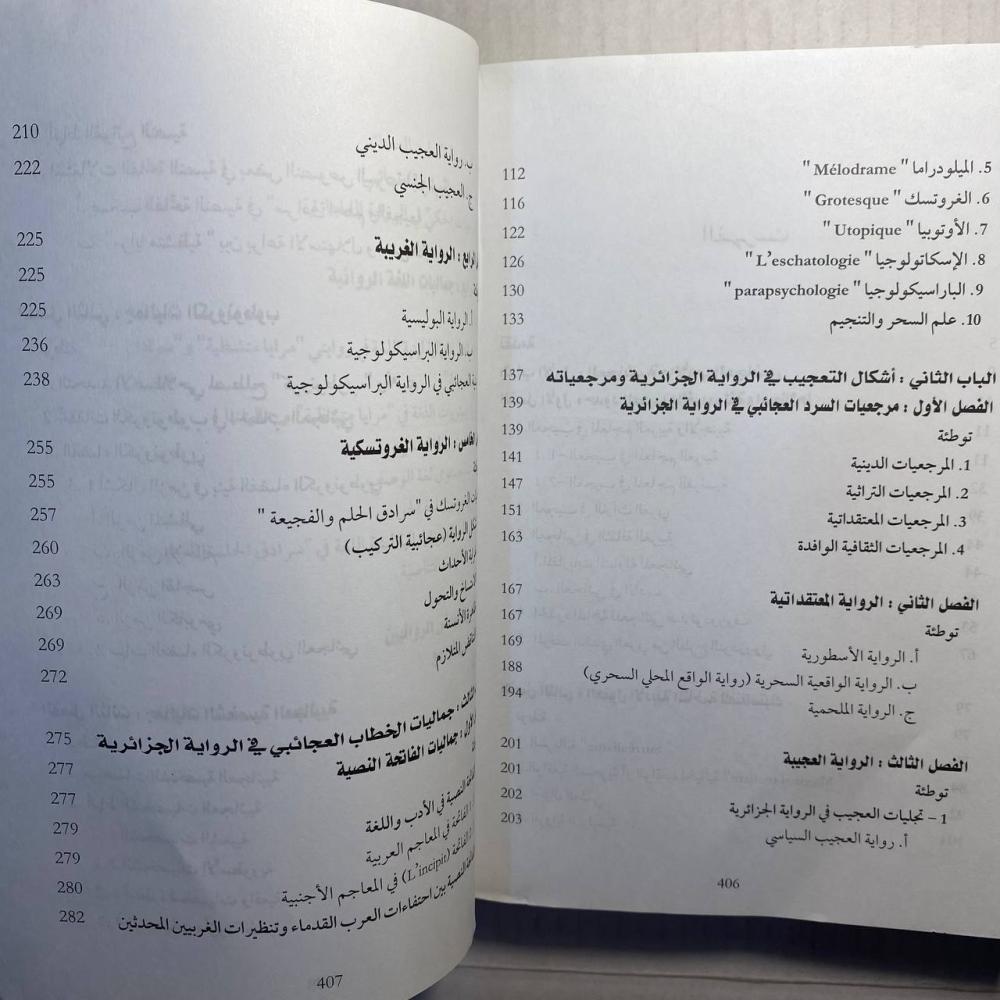 5. الميلودراما "Mélodrame" 112
6. الغروتسك "Grotesque" 116
7. الأوتوبيا "Utopique" 122
8. الإسكاتولوجيا "L'eschatologie" 126
9. الباراسيكولوجيا "parapsychologie" 130
10. علم السحر والتنجيم 133
الباب الثاني : أشكال التعجيب في الرواية الجزائرية ومرجعياته 137
الفصل الأول : مرجعيات السرد العجائبي في الرواية الجزائرية 139
توطئة 139
1. المرجعيات الدينية 141
2. المرجعيات التراثية 147
3. المرجعيات المعتقداتية 151
4. المرجعيات الثقافية الوافدة 163
الفصل الثاني : الرواية المعتقداتية 167
توطئة 167
أ. الرواية الأسطورية 169
ب. الرواية الواقعية السحرية (رواية الواقع المحلي السحري) 188
ج. الرواية الملحمية 194
الفصل الثالث : الرواية العجيبة 201
توطئة 201
1 – تجليات العجيب في الرواية الجزائرية 202
أ. رواية العجيب السياسي 203
406
ب. رواية العجيب الديني 210
ج. العجيب الجنسي 222
الرابع : الرواية الغريبة 225
225
أ. الرواية البوليسية 225
ب. الرواية البراسيكولوجية 236
العجائبي في الرواية البراسيكولوجية 238
الخامس : الرواية الغروتسكية 255
255
الغروتسك في "سرادق الحلم والفجيعة" 257
الرواية (عجائبية التركيب) 260
الأحداث 263
والتحول 269
الأنسنة 269
المتلازم 272
الثالث : جماليات الخطاب العجائبي في الرواية الجزائرية 275
الأول : جماليات الفاتحة النصية 277
277
النصية في الأدب واللغة 279
الفاتحة في المعاجم العربية 279
الفاتحة (L'incipit) في المعاجم الأجنبية 280
النصية بين احتفاءات العرب القدماء وتنظيرات الغربيين المحدثين 282
407